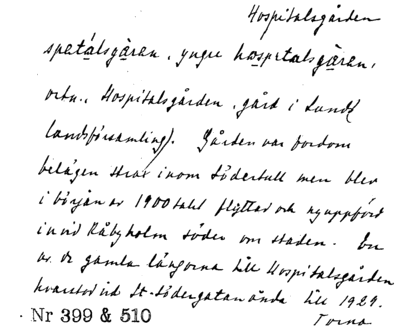 Hospitalsgården
spatálsgāran, yngre hosprtalsgāran,
ortn., Hospitalsgården, gård i Lund(
landsförsamling). Gården var fordom
belägen strax inom Södertull men blev
i början av 1900 talet flyttad och nyuppförd
invid Råbyholm söder om staden. En
av de gamla längorna till Hospitalsgården
kvarstod vid St. Södergatan ända till 1929.
Torna
Nr 399 & 510